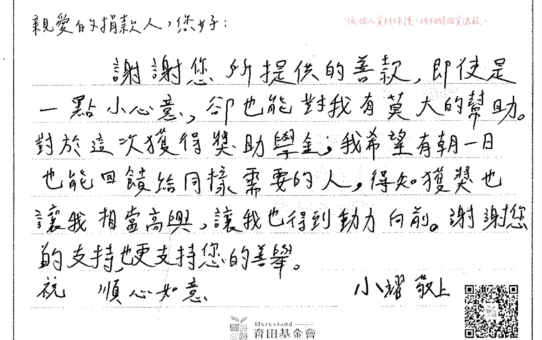 親愛的捐款人，您好：
依個人資料保護，特相關個資遮蔽。
謝謝您所提供的善款，即使是
一點小心意，卻也能對我有莫大的幫助。
對於這次獲得獎助學金，我希望有朝一日
也能回饋給同樣需要的人，得知獲獎也
讓我相當高興，讓我也得到動力向前。謝謝您
的支持，也更支持您的善舉。
祝 順心如意 小耀 敬上
育田基金會